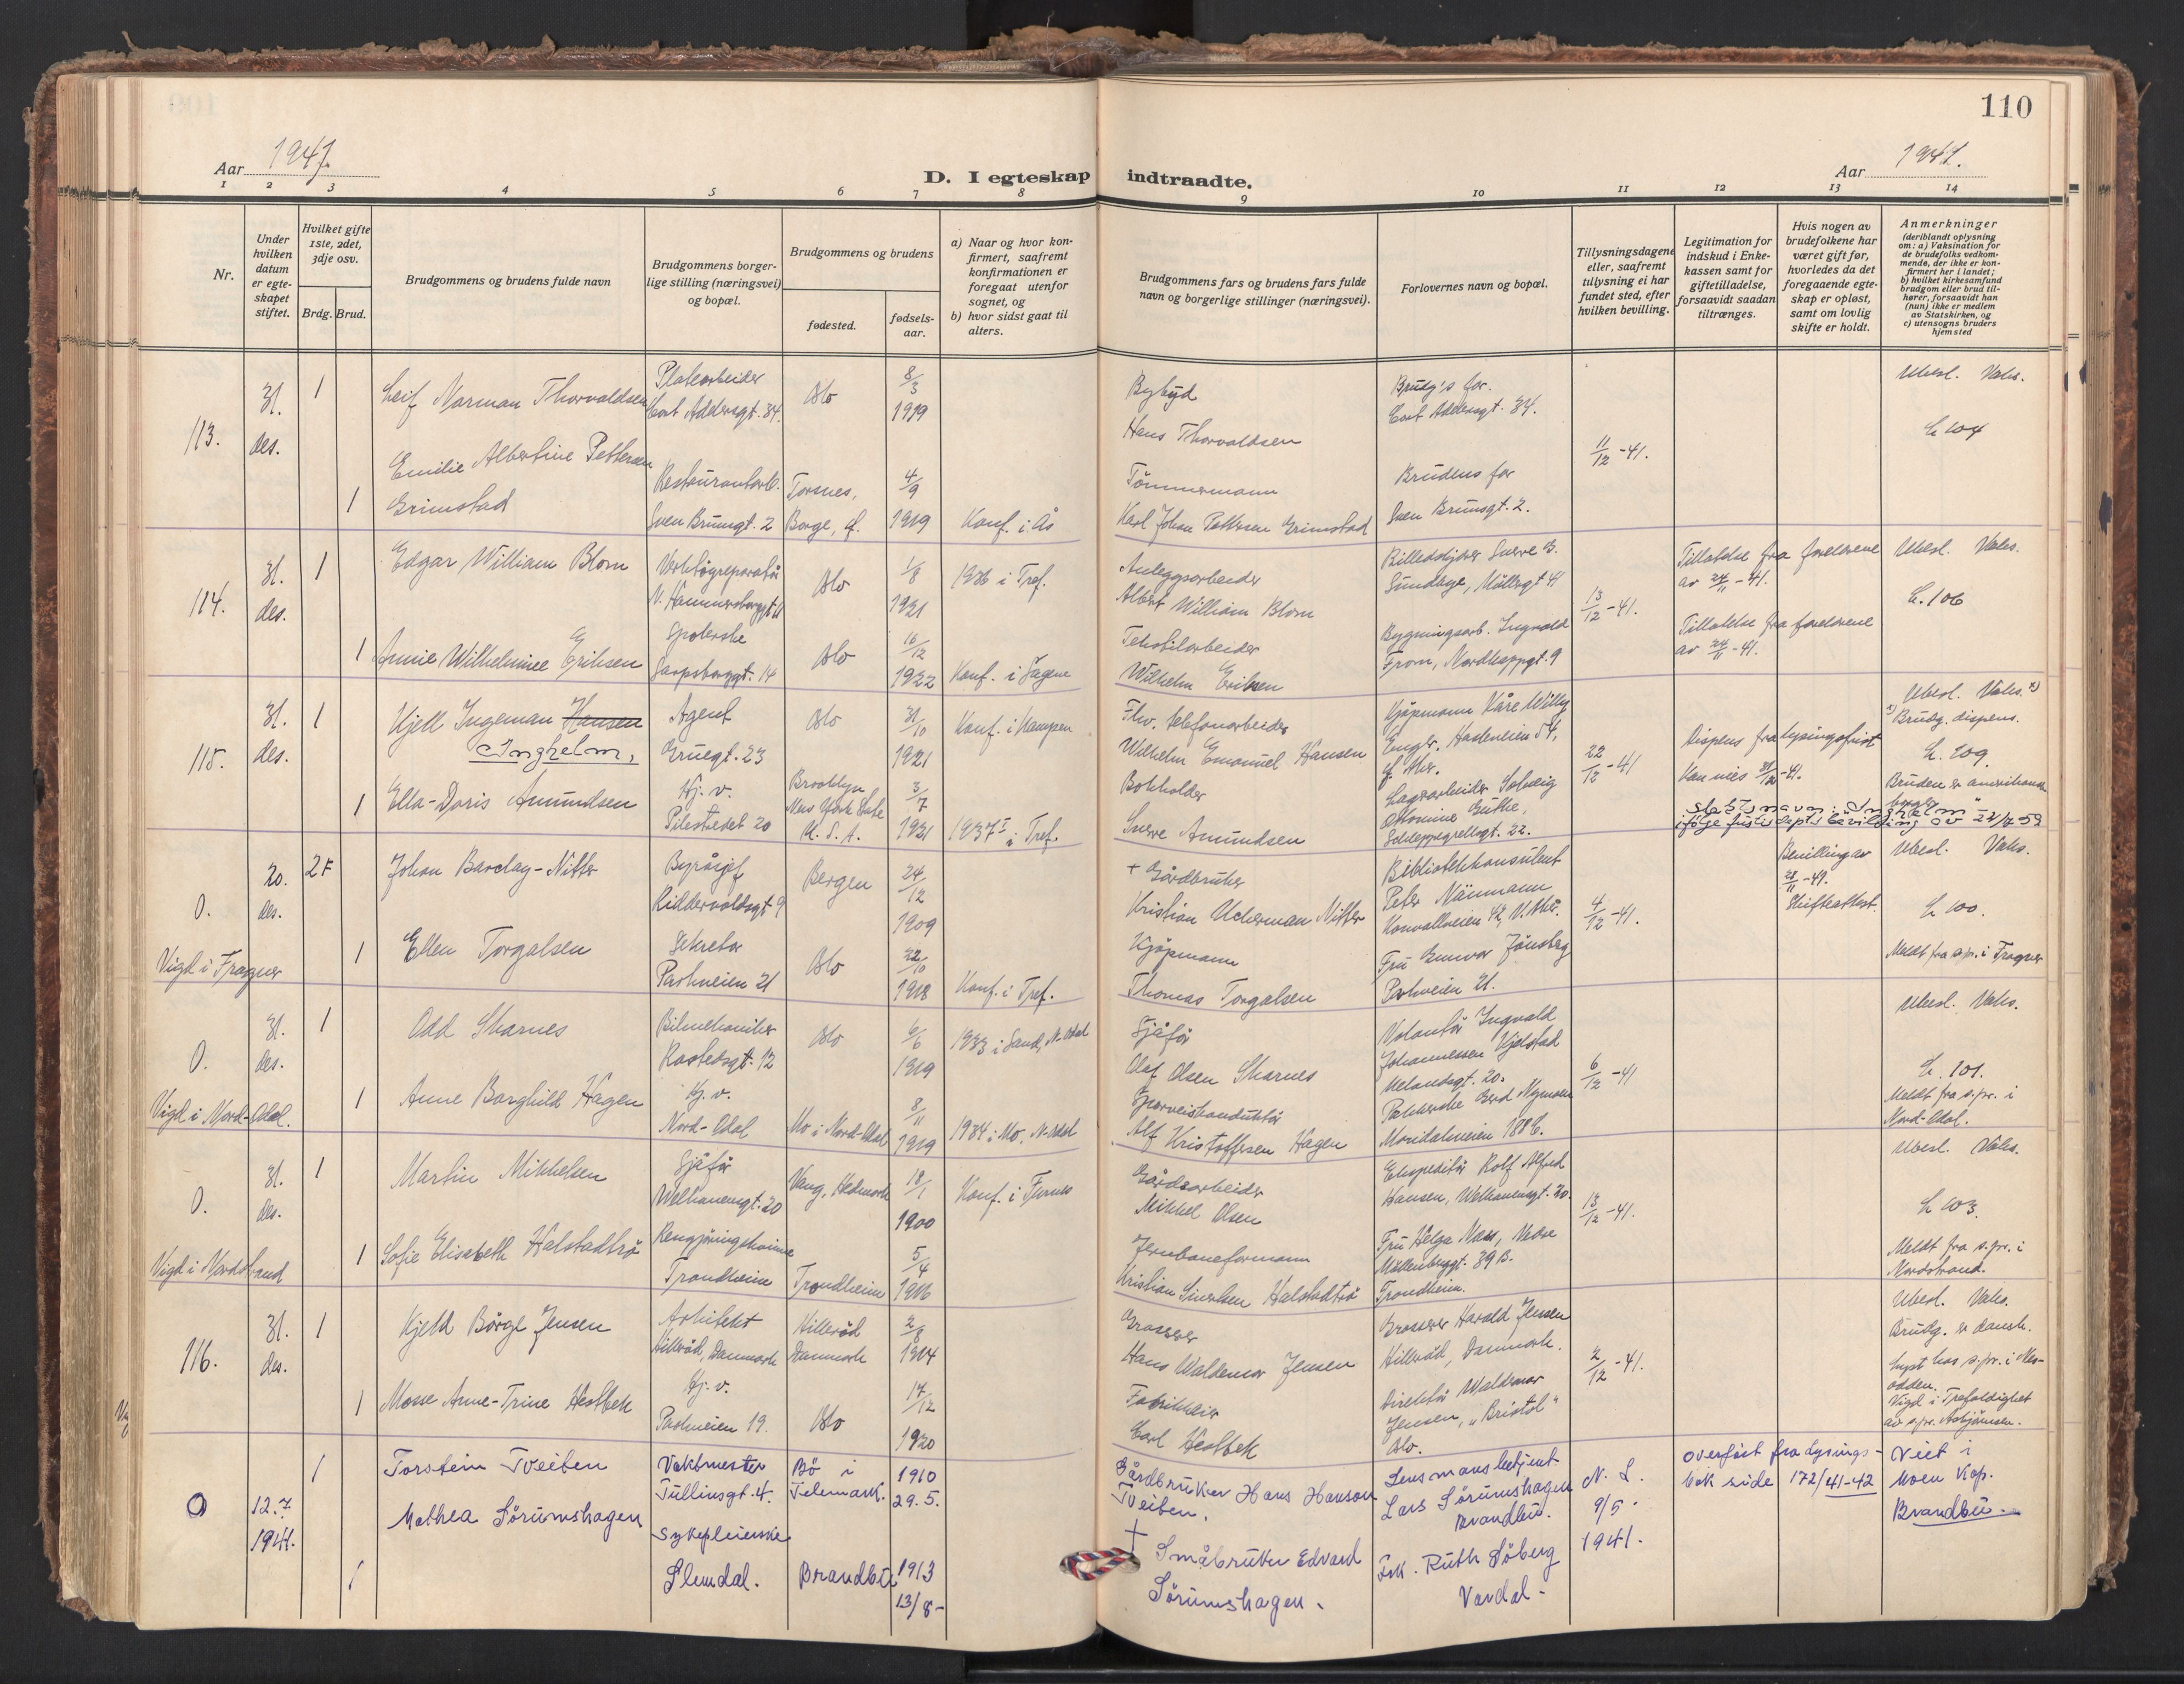 110
Aar 1941.
D. I egteskap indtraadte.
Aar 1941.
1 2 3 4 5 6 7 8 9 10 11 12 13 14
Nr.
Under hvilken datum er egteskapet stiftet.
Hvilket gifte 1ste, 2det, 3dje osv.
Brdg. Brud.
Brudgommens og brudens fulde navn
Brudgommens borgerlige stilling (næringsvei) og bopæl.
Brudgommens og brudens
fødested.
fødselsaar.
a) Naar og hvor konfirmert, saafremt konfirmationen er foregaat utenfor sognet, og
b) hvor sidst gaat til alters.
Brudgommens fars og brudens fars fulde navn og borgerlige stillinger (næringsvei).
Forlovernes navn og bopæl.
Tillysningsdagene eller, saafremt tillysning ei har fundet sted, efter hvilken bevilling.
Legitimation for indskud i Enkekassen samt for giftetilladelse, forsaavidt saadan tiltrænges.
Hvis nogen av brudefolkene har været gift før, hvorledes da det foregaaende egteskap er opløst, samt om lovlig skifte er holdt.
Anmerkninger
(deriblandt oplysning om: a) Vaksination for de brudefolks vedkommende, der ikke er konfirmert her i landet;
b) hvilket kirkesamfund brudgom eller brud tilhører, forsaavidt han (hun) ikke er medlem av Statskirken, og
c) utensogns bruders hjemsted
113.
31. des.
1
Leif Norman Thorvaldsen
Platearbeider
Cort Adelersgt. 34.
Oslo
8/3 1919
Bybud
Hans Thorvaldsen
Brudg's far.
Cort Adelersgt. 34.
11/12 -41.
Ubesl. Vaks.
L 104
1
Emilie Albertine Pettersen
Grimstad
Restaurantarb.
Sven Brunsgt. 2
Torsnes,
Borge, Ø.
4/9 1919
Konf. i Ås
Tömmermann
Karl Johan Pettersen Grimstad
Brudens far
Sven Brunsgt. 2.
114.
31. des.
1
Edgar William Blom
Verktøyreparatör
N. Hammersborggt.
Oslo
1/8 1921
1936 i Tref.
Anleggsarbeider
Albert William Blom
Sundage, Möllegt 41
13/12 -41.
Tillatelse fra foreldrene
av 24/11 -41.
Ubesl. Vaks.
L. 106
1
Annie Wilhelmine Eriksen
Spolerske
Sarpsborggt. 14
Oslo
16/12 1922
Konf. i Sagene
Tekstilarbeider
Wilhelm Eriksen
Bygningsarb. Ingvald
From, Nordkappgt. 9
Tillatelse fra foreldrene
av 24/11 -41.
115.
31. des.
1
Kjell Ingeman Hansen
Inghelm,
Agent
Gruegt. 23
Oslo
31/10 1921
Konf. i Kampen
Fhv. telefonarbeider
Wilhelm Emanuel Hansen
Kjøpmann Kåre Willy
22/12 -41
Dispens fra lysingsfrist
Kan vies 31/12 -41.
Ubesl. Vaks. x)
x) Brudg. dispens.
L. 109
1
Ella-Doris Amundsen
Hj. v.
Pilestredet 20
Brooklyn
New York State
U. S. A.
3/7 1921
1937 i Tref.
Bokholder
Sverre Amundsen
Lagerarbeider Solveig
Schleppegrellsgt. 22.
Bruden er amerikansk
borger
Slektsnavn: "Inghelm"
ifølge justisdepts bevilling av 22/7 52
O.
Vigd i Frogner
20. des.
2 F
Johan Barclay-Nitter
Byråsjef
Riddervoldsgt 9
Bergen
24/12 1909
+ Gårdbruker
Kristian Uckerman Nitter
Bibliotekkonsulent
Peter Näumann
Konvallveien 42, V. Aker.
4/12 -41.
Bevilling av
28/11 -41.
Skifteattest.
Ubesl. Vaks.
L 100.
1
Ellen Torgalsen
Sekretær
Parkveien 21
Oslo
22/10 1918
Konf. i Tref.
Kjøpmann
Thomas Torgalsen
Fru Gunvor Jönsberg
Parkveien 21.
Meldt fra s.pr. i Frogner
O.
Vigd i Nord-Odal.
31. des.
1
Odd Skarnes
Bilmekaniker
Kastedsgt. 12
Oslo
6/6 1919
1933 i Sand, N. Odal
Sjåför
Olaf Olsen Skarnes
Volontör Ingvald
Johannessen Kjølstad
Melandsgt. 20.
6/12 -41
Ubesl. Vaks.
L. 101.
1
Anne Borghild Hagen
Hj. v.
Nord-Odal
Mo i Nord-Odal
8/11 1919
1934 i Mo, N-Odal
Sporveiskonduktör
Alf Kristoffersen Hagen
Pakkerske Gerd Nymoen
Maridalsveien 188 B.
Meldt fra s.pr. i
Nord-Odal.
O.
Vigd i Nordstrand
31. des.
1
Martin Mikkelsen
Sjåför
Welhavensgt. 20
Vang, Hedmark
18/1 1900
Konf. i Furnes
Gårdsarbeider
Mikkel Olsen
Ekspeditör Rolf Alfred
Hansen, Welhavensgt. 20.
13/12 -41.
Ubesl. Vaks.
L 103.
1
Sofie Elisabeth Halstadtrö
Rengjöringskvinne
Trondheim
Trondheim
5/4 1916
Jernbaneformann
Kristian Sivertsen Halstadtrö
Fru Helga Næss, Nedre
Möllenberggt. 39 B.
Trondheim.
Meldt fra s.pr. i
Nordstrand.
116.
31. des.
1
Kjeld Börge Jensen
Arkitekt
Hilleröd, Danmark
Hilleröd
Danmark
2/8 1914
Grosserer
Hans Waldemar Jensen
Grosserer Harald Jensen
Hilleröd, Danmark.
2/12 -41.
Ubesl. Vaks.
Brudg. er dansk.
Lyst hos s.pr. i Nes-
odden.
1
Mosse Anne-Trine Hestbek
Hj. v.
Parkveien 19.
Oslo
17/12 1920
Fabrikkeier
Carl Hestbek
Direktör Waldemar
Jensen, "Bristol"
Oslo.
Vigd i Trefoldighet
av s.pr. Asbjörnsen.
O
12.7. 1941.
1
Torstein Tveiten
Vaktmester
Tullinsgt. 4.
Bö i
Telemark.
1910
29. 5.
Gårdbruker Hans Hanson
Tveiten.
Lensmansbetjent
Lars Sörumshagen
Brandbu.
N. L.
9/5 -
1941.
Overfört fra Lysings-
bok side 172/41-42
Viet i
Moen Kap.
Brandbu.
1
Mathea Sörumshagen
Sykepleierske
Slemdal.
Brandbu
1913
13/8 -
† Småbruker Edvard
Sörumshagen.
Frk. Ruth Söberg
Vardal -